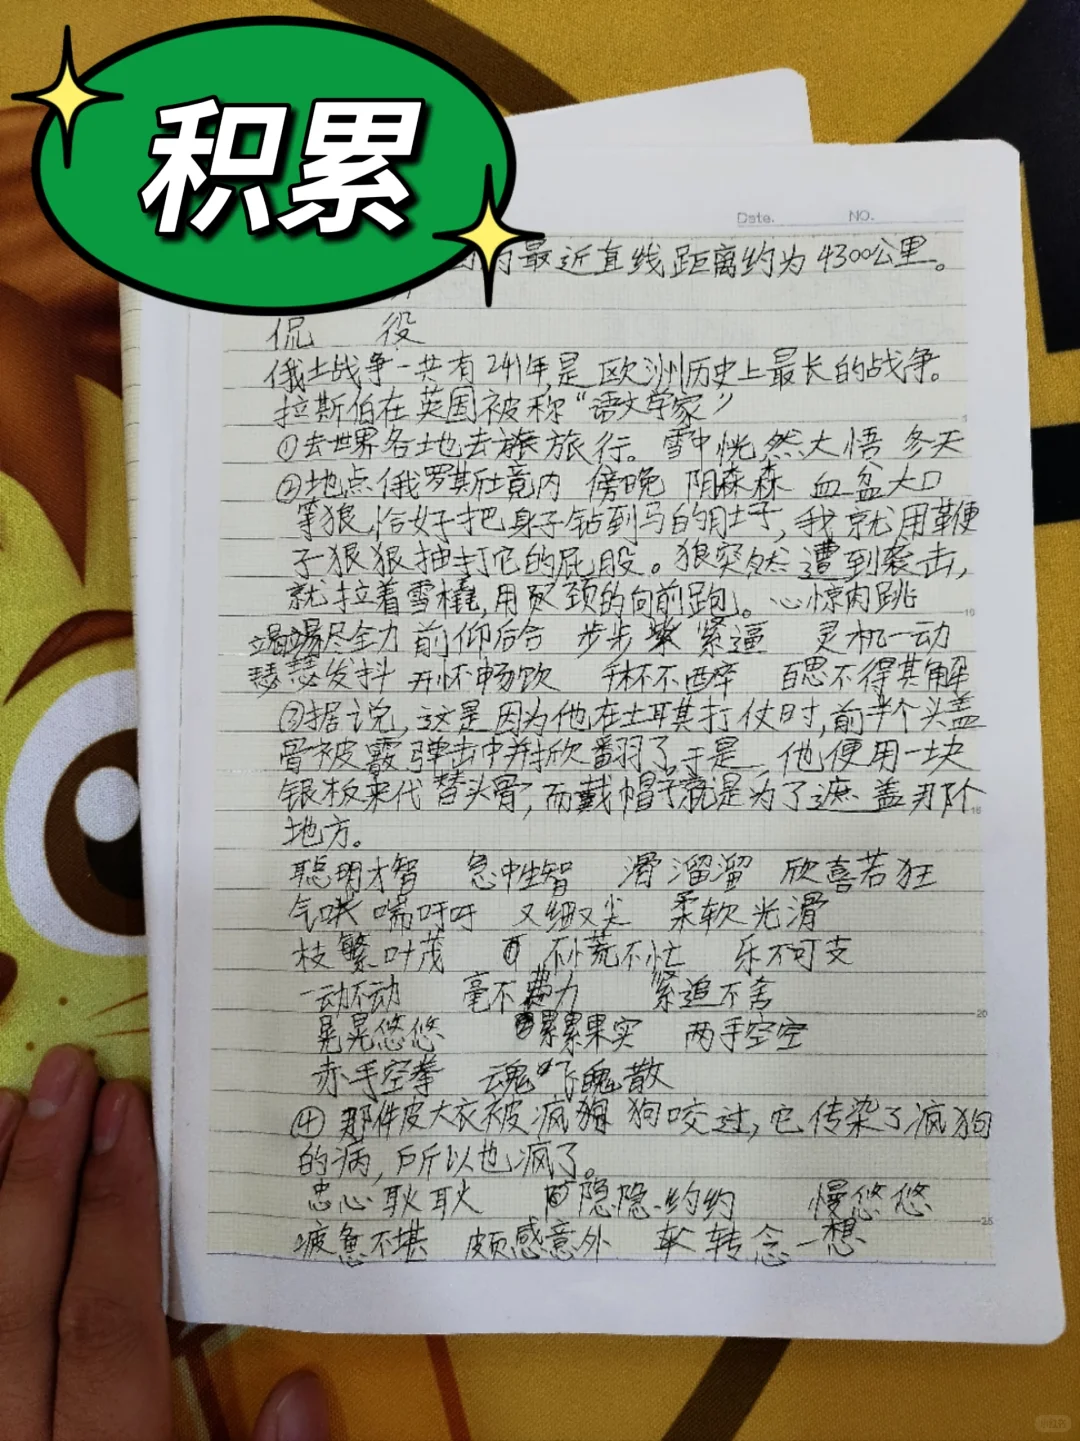 积累
Date. NO.
最近直线距离约为4300公里。
侃 役
俄土战争一共有241年,是欧洲历史上最长的战争。
拉斯伯在英国被称“语文学家”
①去世界各地去旅行。 雪中恍然大悟 冬天
②地点俄罗斯境内 傍晚 阴森森 血盆大口
等狼,恰好把身子钻到马的肚子,我就用鞭
子狠狠抽打它的屁股。狼突然遭到袭击,
就拉着雪橇,用 颈的向前跑。心惊肉跳
竭尽全力 前仰后合 步步紧逼 灵机一动
瑟瑟发抖 开怀畅饮 千杯不醉 百思不得其解
③据说,这是因为他在土耳其打仗时,前半个头盖
骨被霰弹击中并掀翻了于是 他便用一块
银板来代替头骨,而戴帽子就是为了遮盖那个
地方。
聪明才智 急中生智 滑溜溜 欣喜若狂
气喘吁吁 又细又尖 柔软光滑
枝繁叶茂 不慌不忙 乐不可支
一动不动 毫不费力 紧追不舍
晃晃悠悠 累累果实 两手空空
赤手空拳 魂飞魄散
④那件皮大衣被疯狗咬过,它传染了疯狗
的病,所以也疯了。
忠心耿耿 隐隐约约 慢悠悠
疲惫不堪 颇感意外 转念一想